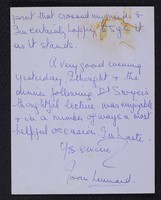 point that crossed my mind &
I'm certainly happy to sign it
as it stands.
A very good evening
yesterday, I thought & the
dinner following Dr Sawyer's
thoughtful lecture was enjoyable
& in a number of ways a most
helpful occasion. In haste
Yrs ever